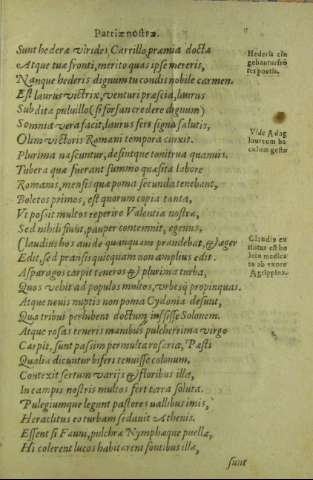 Patriæ nostræ.
Sunt hederæ virides, Carrillo, præmia doctæ
Atque tuæ fronti, merito quas ipse mereris,
Nanque hederis dignum tu condis nobile carmen.
Est laurus victrix, venturi præscia, laurus
Subdita pulvillo (si forsan credere dignum)
Somnia vera facit, laurus fert signa salutis,
Olim victoris Romani tempora cinxit.
Plurima nascuntur, desintque tonitrua quamvis.
Tubera quæ fuerant summo quæsita labore
Romanis, mensis quæ poma secunda tenebant,
Boletos primos, est quorum copia tanta,
Vt possit multos reperire Valentia nostra,
Sed nihili fiunt, pauper contemnit, egenus,
Claudius hos avide quanquam prandebat, & æger
Edit, sed pransis quicquam non amplius edit.
Asparagos carpit teneros & plurima turba,
Quos vehit ad populos multos, vrbesq; propinquas.
Atque novis nuptis non poma Cydonia desunt,
Quæ tribui perhibent doctum iussisse Solonem.
Atque rosas teneris manibus pulcherrima virgo
Carpit, sunt passim permulta rosaria, Pæsti
Qualia dicuntur biferi tenuisse colonum.
Contexit sertum varijs & floribus illa,
In campis nostris multos fert terra soluta.
Pulegiumque legunt pastores vallibus imis,
Heraclitus eo turbam sedavit Athenis.
Essent si Fauni, pulchræ Nymphæque puellæ,
Hi colerent lucos habitarent fontibus illæ,
sunt
Hederis cin
gebantur frō
tes poetis.
Vide Adag
laureum ba
culum gesto
Claudio ex
titatus est bo
leto medica
to ab vxore
Agrippina.